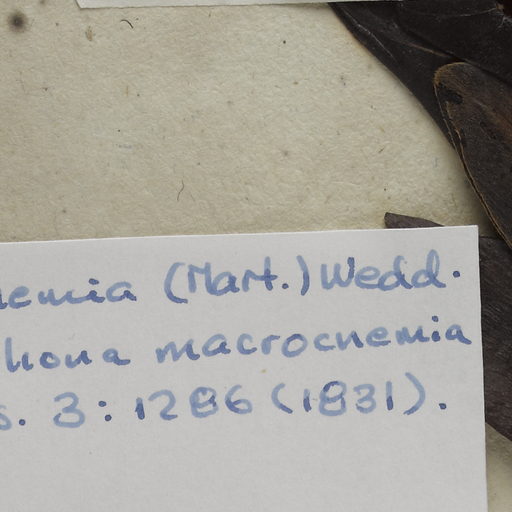 nemia (Mart.) Wedd.
hona macrocnemia
s. 3: 1286 (1831).